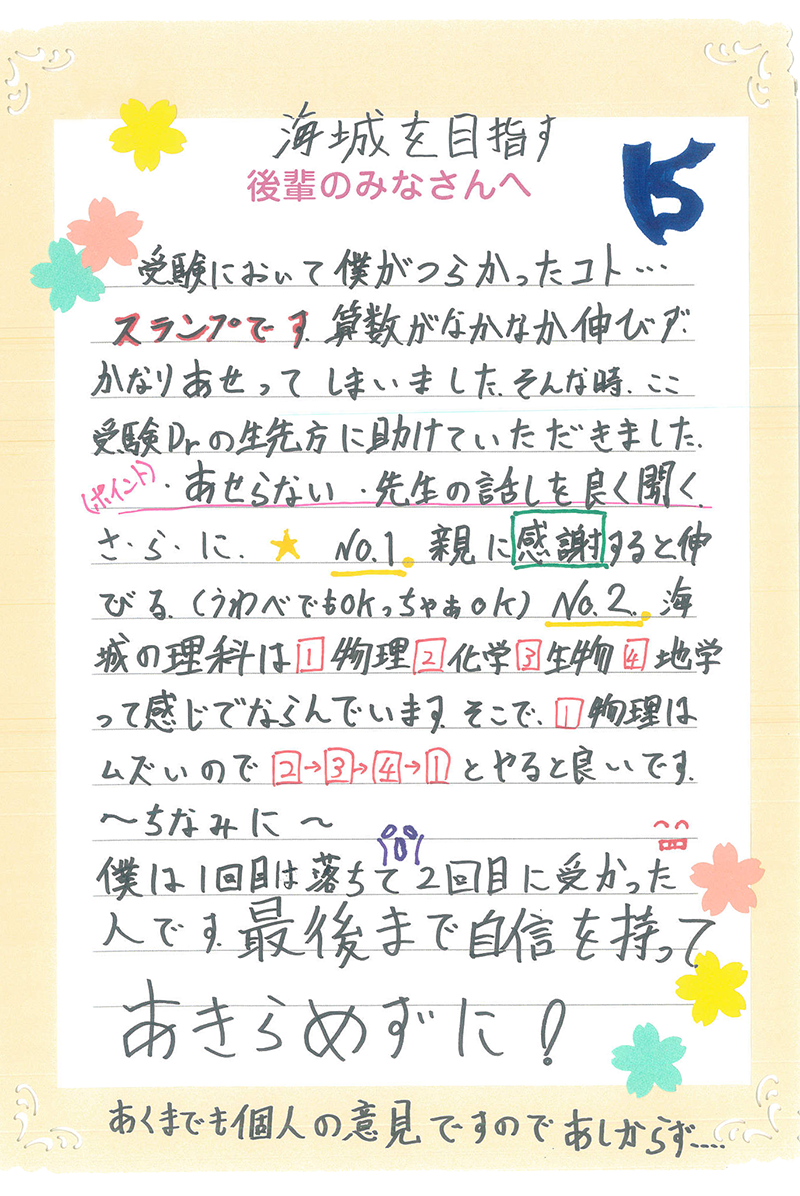 海城を目指す
後輩のみなさんへ
受験において僕がつらかったコト…
スランプです.算数がなかなか伸びず.
かなりあせってしまいました.そんな時、ここ
受験Drの生先方に助けていただきました.
(ポイント)・あせらない・先生の話しを良く聞く.
さ・ら・に、★ No.1. 親に感謝すると伸
びる.(うわべでもOKっちゃぁOK) No.2. 海
城の理科は1物理2化学3生物4地学
って感じでならんでいます.そこで、1物理は
ムズいので2→3→4→1とやると良いです.
〜ちなみに〜
僕は1回目は落ちて2回目に受かった
人です.最後まで自信を持って
あきらめずに!
あくまでも個人の意見ですのであしからず....